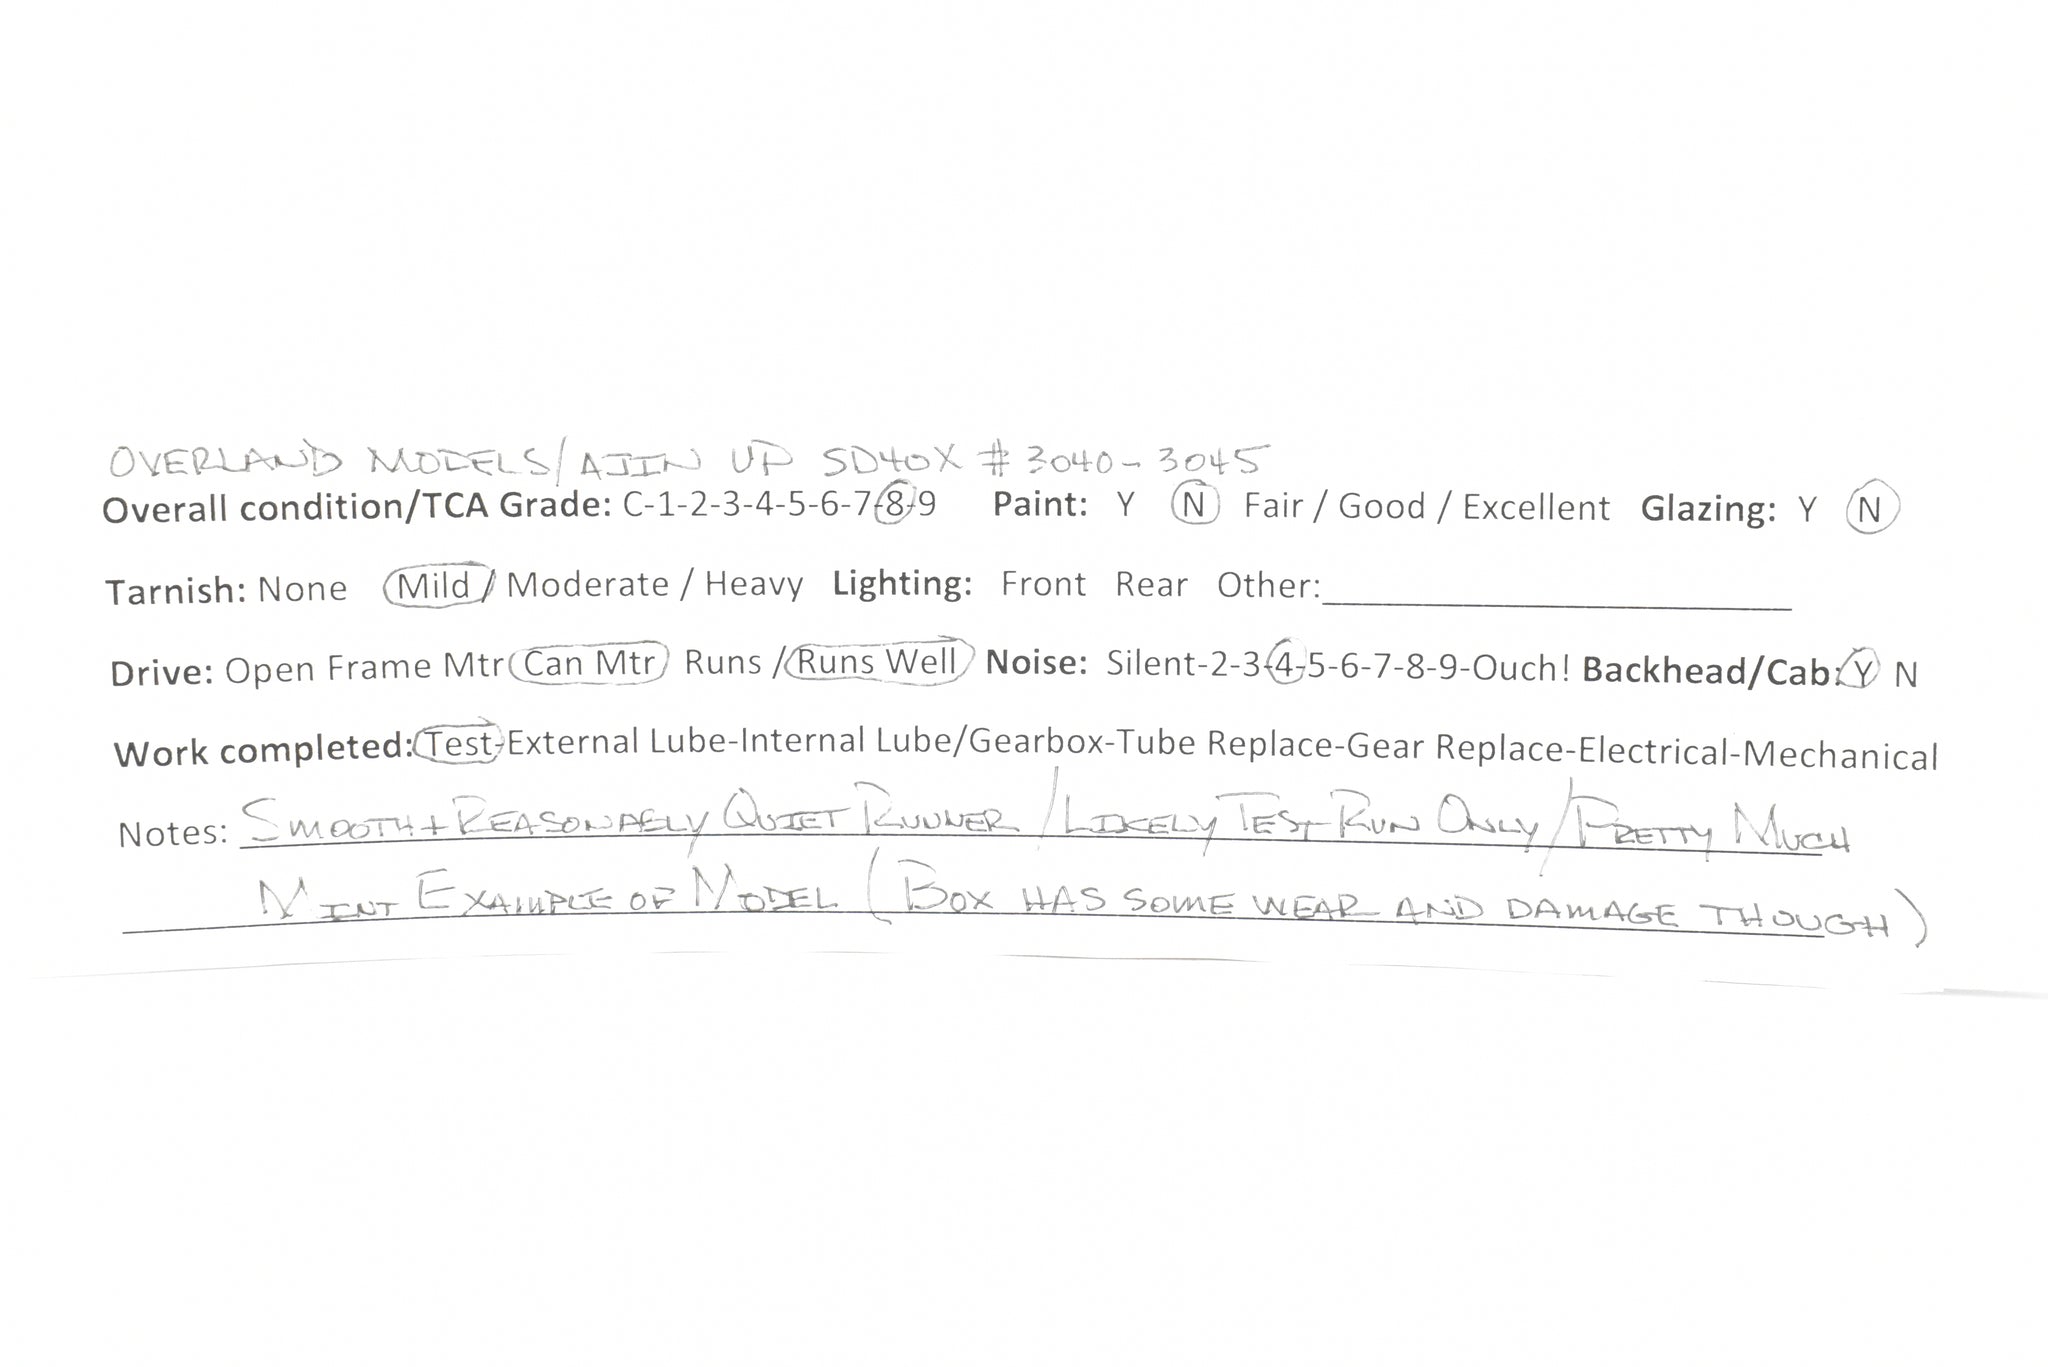 OVERLAND MODELS/AJIN UP SD40X #3040-3045
Overall condition/TCA Grade: C-1-2-3-4-5-6-7-8-9 Paint: Y N Fair / Good / Excellent Glazing: Y N
Tarnish: None Mild / Moderate / Heavy Lighting: Front Rear Other:
Drive: Open Frame Mtr Can Mtr Runs / Runs Well Noise: Silent-2-3-4-5-6-7-8-9-Ouch! Backhead/Cab: Y N
Work completed: Test-External Lube-Internal Lube/Gearbox-Tube Replace-Gear Replace-Electrical-Mechanical
Notes: SMOOTH + REASONABLY QUIET RUNNER / LIKELY TEST RUN ONLY / PRETTY MUCH
MINT EXAMPLE OF MODEL (BOX HAS SOME WEAR AND DAMAGE THOUGH)